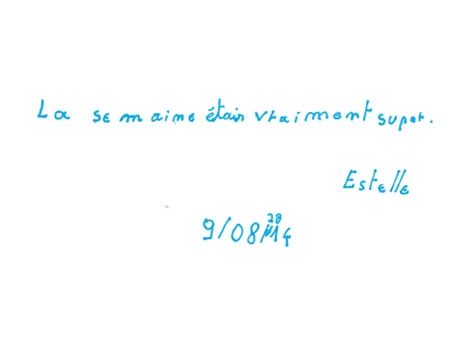 La semaine étais vraiment super.
Estelle
9/08/14